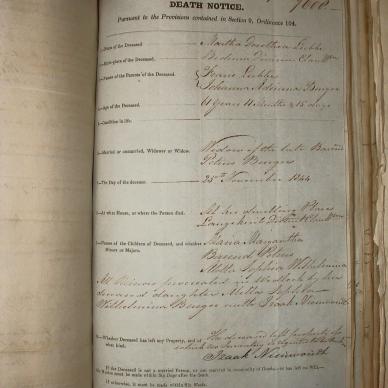 DEATH NOTICE.
Pursuant to the Provisions contained in Section 9, Ordinance 104.
1—Name of the Deceased
Martha Dorothea Lubbe
2—Birth-place of the Deceased
3—Names of the Parents of the Deceased
Frans Lubbe
Johanna Adriana Burger
4—Age of the Deceased
61 Years 4 Months & 15 days
5—Condition in life
6—Married or unmarried, Widower or Widow
Widow of the late Barend
Petrus Burger
7—The Day of the decease
25th November 1844
8—At what House, or where the Person died
At her dwelling Place
District
9—Names of the Children of Deceased, and whether
Minors or Majors.
Maria Margaretha
Barend Petrus
Aletta Sophia Wilhelmina
All Minors procreated in Wedlock by her
deceased daughter Aletta Sophia
Wilhelmina Burger with Izaak
10—Whether Deceased has left any Property, and of
what kind.
Deceased left property
Izaak
If the Deceased is not a married Person, or not married in community of Property,
must be made within Six Days after the Death
if otherwise, it must be made within Six Weeks.